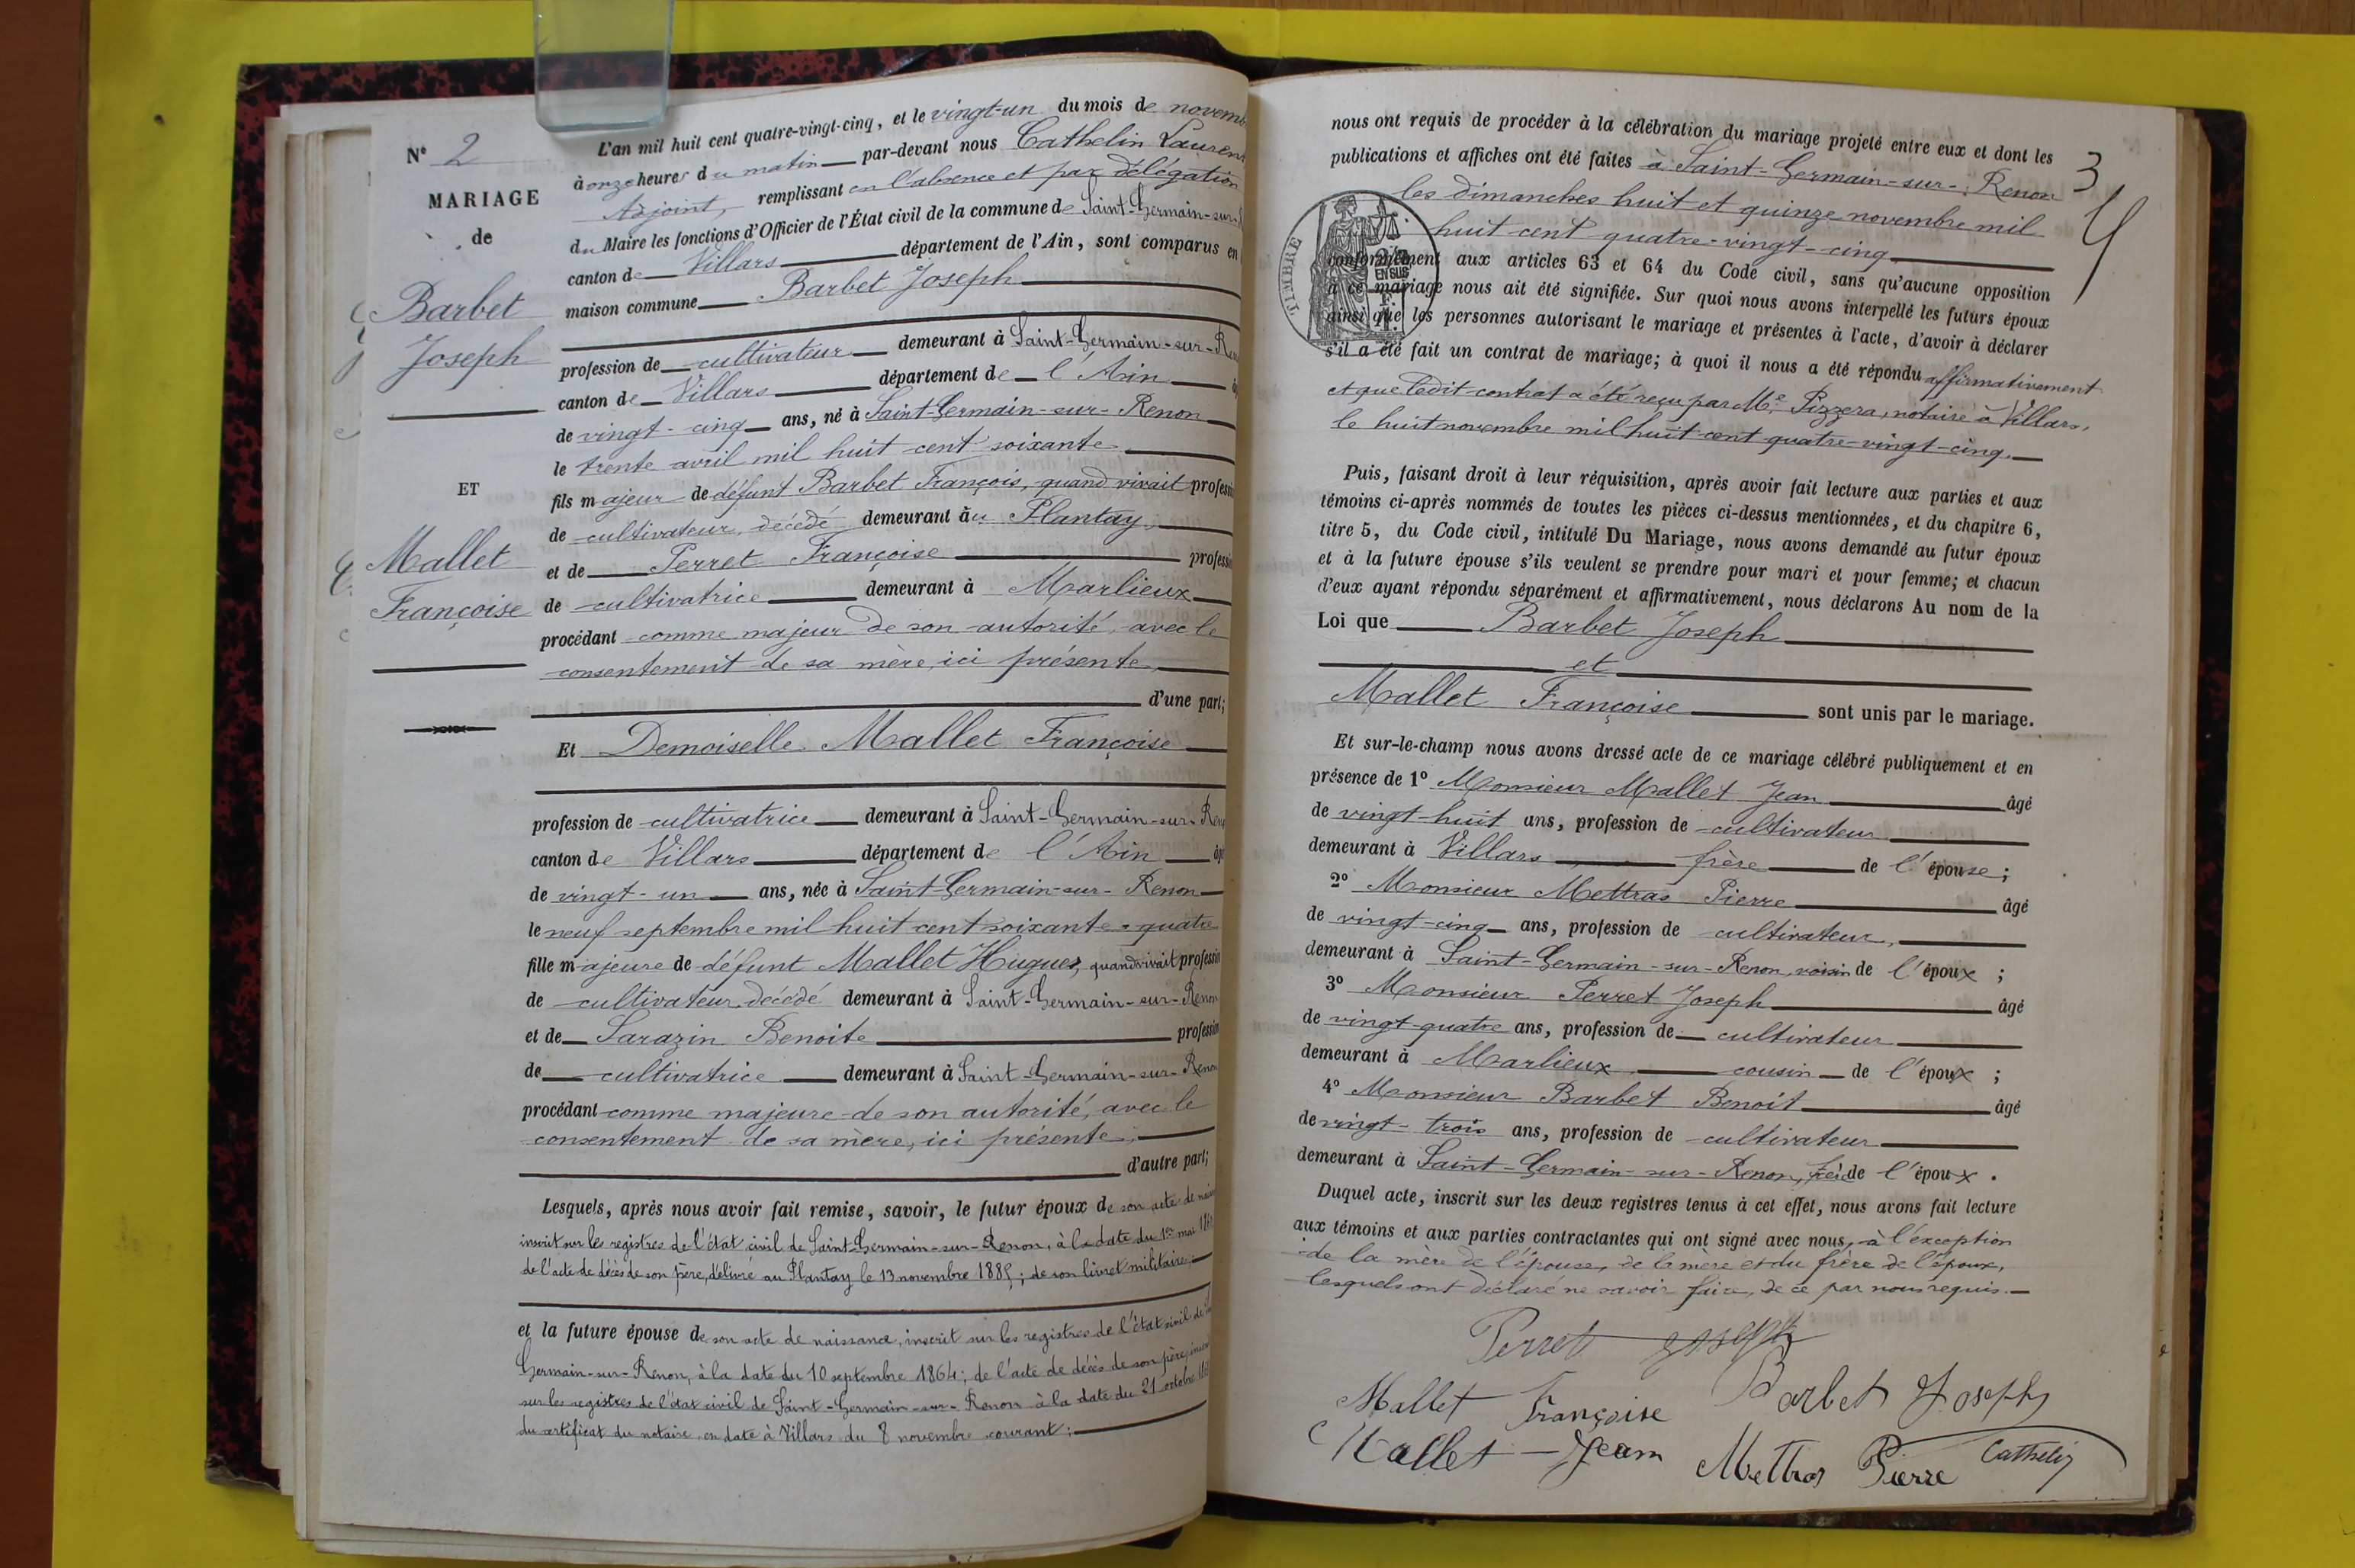 N° 2
MARIAGE
de
Barbet
Joseph
ET
Mallet
Françoise
L'an mil huit cent quatre-vingt-cinq, et le vingt-un du mois de novemb
à onze heures du matin par-devant nous Cathelin Lauren
Adjoint, remplissant en l'absence et par délégation
du Maire les fonctions d'Officier de l'État civil de la commune de Saint-Germain-sur-
canton de Villars département de l'Ain, sont comparus en
maison commune Barbet Joseph
profession de cultivateur demeurant à Saint-Germain-sur-Ren
canton de Villars département de l'Ain
de vingt-cinq ans, né à Saint-Germain-sur-Renon
le trente avril mil huit cent soixante
fils majeur de défunt Barbet François, quand vivait professi
de cultivateur, décédé demeurant au Plantay,
et de Perret Françoise professi
de cultivatrice demeurant à Marlieux
procédant comme majeur de son autorité, avec le
consentement de sa mère, ici présente,
d'une part;
Et Demoiselle Mallet Françoise
profession de cultivatrice demeurant à Saint-Germain-sur-Ren
canton de Villars département de l'Ain âg
de vingt-un ans, née à Saint-Germain-sur-Renon
le neuf septembre mil huit cent soixante-quatre
fille majeure de défunt Mallet Hugues, quand vivait professi
de cultivateur, décédé demeurant à Saint-Germain-sur-Renon
et de Sarazin Benoite professi
de cultivatrice demeurant à Saint-Germain-sur-Renon
procédant comme majeure de son autorité, avec le
consentement de sa mère, ici présente,
d'autre part;
Lesquels, après nous avoir fait remise, savoir, le futur époux de son acte de nais
inscrit sur les registres de l'état civil de Saint-Germain-sur-Renon, à la date du 1er mai
de l'acte de décès de son père, délivré au Plantay le 13 novembre 1885; de son livret militaire;
et la future épouse de son acte de naissance, inscrit sur les registres de l'état civil de
Germain-sur-Renon, à la date du 10 septembre 1864; de l'acte de décès de son père, inscri
sur les registres de l'état civil de Saint-Germain-sur-Renon à la date du 21 octobre
du certificat du notaire, en date à Villars du 8 novembre courant;
3
nous ont requis de procéder à la célébration du mariage projeté entre eux et dont les
publications et affiches ont été faites à Saint-Germain-sur-Renon
les dimanches huit et quinze novembre mil
huit cent quatre-vingt-cinq
TIMBRE
EN SUS
conformément aux articles 63 et 64 du Code civil, sans qu'aucune opposition
à ce mariage nous ait été signifiée. Sur quoi nous avons interpellé les futurs époux
ainsi que les personnes autorisant le mariage et présentes à l'acte, d'avoir à déclarer
s'il a été fait un contrat de mariage; à quoi il nous a été répondu affirmativement
et que ledit contrat a été reçu par Me Pizzera, notaire à Villars,
le huit novembre mil huit cent quatre-vingt-cinq.
Puis, faisant droit à leur réquisition, après avoir fait lecture aux parties et aux
témoins ci-après nommés de toutes les pièces ci-dessus mentionnées, et du chapitre 6,
titre 5, du Code civil, intitulé Du Mariage, nous avons demandé au futur époux
et à la future épouse s'ils veulent se prendre pour mari et pour femme; et chacun
d'eux ayant répondu séparément et affirmativement, nous déclarons Au nom de la
Loi que Barbet Joseph
et
Mallet Françoise sont unis par le mariage.
Et sur-le-champ nous avons dressé acte de ce mariage célébré publiquement et en
présence de 1° Monsieur Mallet Jean âgé
de vingt-huit ans, profession de cultivateur
demeurant à Villars frère de l'épouse;
2° Monsieur Mettras Pierre âgé
de vingt-cinq ans, profession de cultivateur,
demeurant à Saint-Germain-sur-Renon, voisin de l'époux;
3° Monsieur Perret Joseph âgé
de vingt-quatre ans, profession de cultivateur
demeurant à Marlieux cousin de l'époux;
4° Monsieur Barbet Benoit âgé
de vingt-trois ans, profession de cultivateur
demeurant à Saint-Germain-sur-Renon, frère de l'époux.
Duquel acte, inscrit sur les deux registres tenus à cet effet, nous avons fait lecture
aux témoins et aux parties contractantes qui ont signé avec nous, à l'exception
de la mère de l'épouse, de la mère et du frère de l'époux,
lesquels ont déclaré ne savoir faire, de ce par nous requis.
Perret Joseph
Mallet Françoise Barbet Joseph
Mallet Jean Mettras Pierre Cathelin